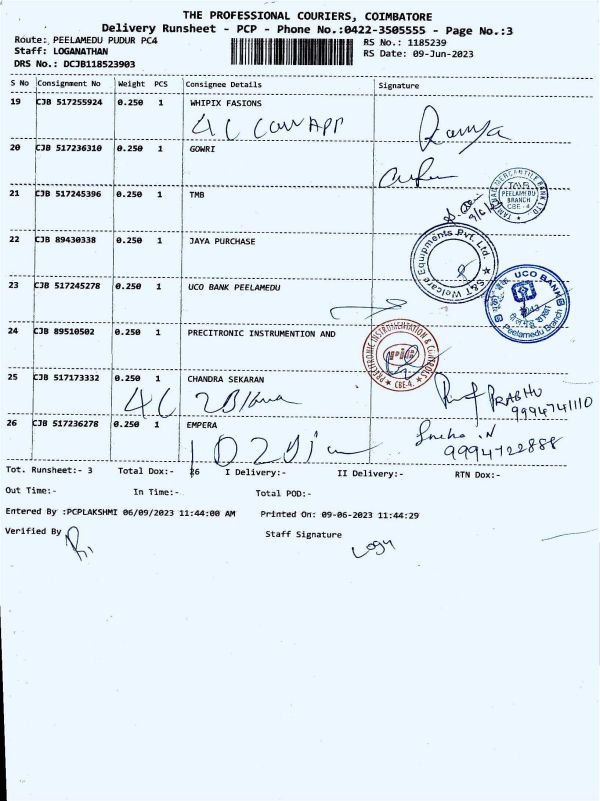 THE PROFESSIONAL COURIERS, COIMBATORE
Delivery Runsheet - PCP - Phone No.:0422-3505555 - Page No.:3
Route: PEELAMEDU PUDUR PC4 RS No.: 1185239
Staff: LOGANATHAN RS Date: 09-Jun-2023
DRS No.: DCJB118523903
S No Consignment No Weight PCS Consignee Details Signature
19 CJB 517255924 0.250 1 WHIPIX FASIONS
4C COW APP Ramya
20 CJB 517236310 0.250 1 GOWRI
21 CJB 517245396 0.250 1 TMB
TAMILNAD MERCANTILE BANK LTD
TMB
PEELAMEDU
BRANCH
CBE-4
22 CJB 89430338 0.250 1 JAYA PURCHASE
S&T Welcare Equipments Pvt. Ltd.
23 CJB 517245278 0.250 1 UCO BANK PEELAMEDU
UCO BANK
Peelamedu Branch
24 CJB 89510502 0.250 1 PRECITRONIC INSTRUMENTION AND
PRECITRONIC INSTRUMENTATION & CONTROLS
CBE-4.
25 CJB 517173332 0.250 1 CHANDRA SEKARAN
4C PRABHU
9994741110
26 CJB 517236278 0.250 1 EMPERA
Sneha .N
9994722888
Tot. Runsheet:- 3 Total Dox:- 26 I Delivery:- II Delivery:- RTN Dox:-
Out Time:- In Time:- Total POD:-
Entered By :PCPLAKSHMI 06/09/2023 11:44:00 AM Printed On: 09-06-2023 11:44:29
Verified By Staff Signature
Logu